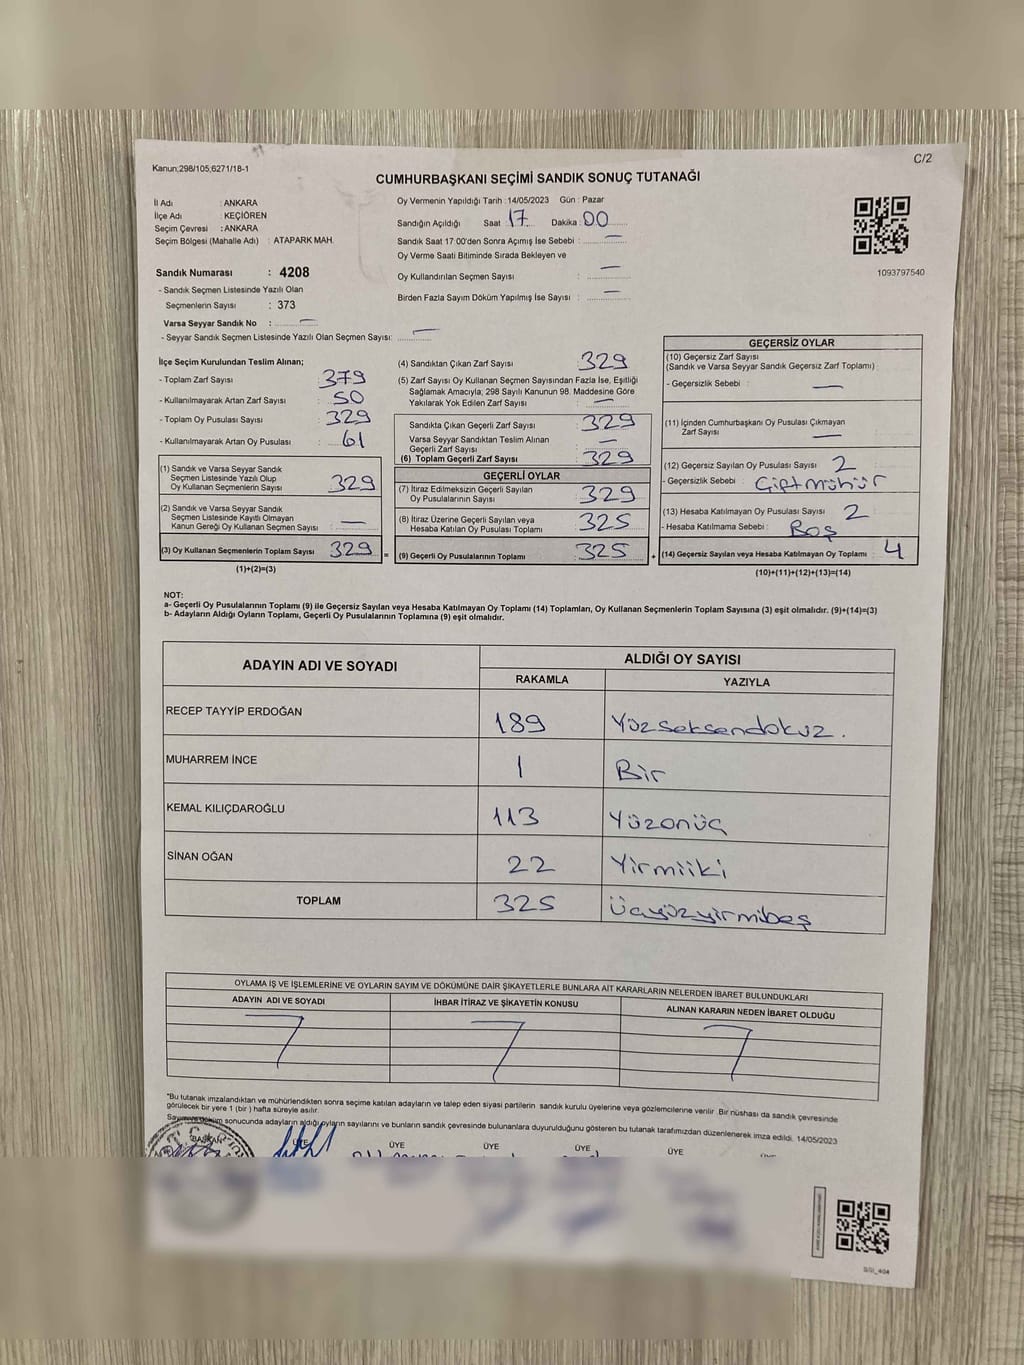 C/2
Kanun;298/105;6271/18-1
CUMHURBAŞKANI SEÇİMİ SANDIK SONUÇ TUTANAĞI
İl Adı : ANKARA
İlçe Adı : KEÇİÖREN
Seçim Çevresi : ANKARA
Seçim Bölgesi (Mahalle Adı) : ATAPARK MAH.
Sandık Numarası : 4208
- Sandık Seçmen Listesinde Yazılı Olan
Seçmenlerin Sayısı : 373
Varsa Seyyar Sandık No : —
- Seyyar Sandık Seçmen Listesinde Yazılı Olan Seçmen Sayısı: —
Oy Vermenin Yapıldığı Tarih : 14/05/2023 Gün : Pazar
Sandığın Açıldığı Saat 17 Dakika 00
Sandık Saat 17:00'den Sonra Açımış İse Sebebi : —
Oy Verme Saati Bitiminde Sırada Bekleyen ve
Oy Kullandırılan Seçmen Sayısı : —
Birden Fazla Sayım Döküm Yapılmış İse Sayısı : —
1093797540
İlçe Seçim Kurulundan Teslim Alınan;
- Toplam Zarf Sayısı : 379
- Kullanılmayarak Artan Zarf Sayısı : 50
- Toplam Oy Pusulası Sayısı : 329
- Kullanılmayarak Artan Oy Pusulası : 61
(1) Sandık ve Varsa Seyyar Sandık
Seçmen Listesinde Yazılı Olup
Oy Kullanan Seçmenlerin Sayısı : 329
(2) Sandık ve Varsa Seyyar Sandık
Seçmen Listesinde Kayıtlı Olmayan
Kanun Gereği Oy Kullanan Seçmen Sayısı : —
(3) Oy Kullanan Seçmenlerin Toplam Sayısı : 329 =
(1)+(2)=(3)
(4) Sandıktan Çıkan Zarf Sayısı : 329
(5) Zarf Sayısı Oy Kullanan Seçmen Sayısından Fazla İse, Eşitliği
Sağlamak Amacıyla; 298 Sayılı Kanunun 98. Maddesine Göre
Yakılarak Yok Edilen Zarf Sayısı : —
Sandıkta Çıkan Geçerli Zarf Sayısı : 329
Varsa Seyyar Sandıktan Teslim Alınan
Geçerli Zarf Sayısı : —
(6) Toplam Geçerli Zarf Sayısı : 329
GEÇERLİ OYLAR
(7) İtiraz Edilmeksizin Geçerli Sayılan
Oy Pusulalarının Sayısı : 329
(8) İtiraz Üzerine Geçerli Sayılan veya
Hesaba Katılan Oy Pusulası Toplamı : 325
(9) Geçerli Oy Pusulalarının Toplamı : 325 +
GEÇERSİZ OYLAR
(10) Geçersiz Zarf Sayısı
(Sandık ve Varsa Seyyar Sandık Geçersiz Zarf Toplamı) :
- Geçersizlik Sebebi : —
(11) İçinden Cumhurbaşkanı Oy Pusulası Çıkmayan
Zarf Sayısı : —
(12) Geçersiz Sayılan Oy Pusulası Sayısı : 2
- Geçersizlik Sebebi : Çift mühür
(13) Hesaba Katılmayan Oy Pusulası Sayısı : 2
- Hesaba Katılmama Sebebi : Boş
(14) Geçersiz Sayılan veya Hesaba Katılmayan Oy Toplamı : 4
(10)+(11)+(12)+(13)=(14)
NOT:
a- Geçerli Oy Pusulalarının Toplamı (9) ile Geçersiz Sayılan veya Hesaba Katılmayan Oy Toplamı (14) Toplamları, Oy Kullanan Seçmenlerin Toplam Sayısına (3) eşit olmalıdır. (9)+(14)=(3)
b- Adayların Aldığı Oyların Toplamı, Geçerli Oy Pusulalarının Toplamına (9) eşit olmalıdır.
ADAYIN ADI VE SOYADI ALDIĞI OY SAYISI
RAKAMLA YAZIYLA
RECEP TAYYİP ERDOĞAN 189 Yüzseksendokuz.
MUHARREM İNCE 1 Bir
KEMAL KILIÇDAROĞLU 113 Yüzonüç
SİNAN OĞAN 22 Yirmiiki
TOPLAM 325 Üçyüzyirmibeş
OYLAMA İŞ VE İŞLEMLERİNE VE OYLARIN SAYIM VE DÖKÜMÜNE DAİR ŞİKAYETLERLE BUNLARA AİT KARARLARIN NELERDEN İBARET BULUNDUKLARI
ADAYIN ADI VE SOYADI İHBAR İTİRAZ VE ŞİKAYETİN KONUSU ALINAN KARARIN NEDEN İBARET OLDUĞU
"Bu tutanak imzalandıktan ve mühürlendikten sonra seçime katılan adayların ve talep eden siyasi partilerin sandık kurulu üyelerine veya gözlemcilerine verilir .Bir nüshası da sandık çevresinde
görülecek bir yere 1 (bir ) hafta süreyle asılır.
Sayım döküm sonucunda adayların aldığı oyların sayılarını ve bunların sandık çevresinde bulunanlara duyurulduğunu gösteren bu tutanak tarafımızdan düzenlenerek imza edildi. 14/05/2023
BAŞKAN ÜYE ÜYE ÜYE ÜYE ÜYE